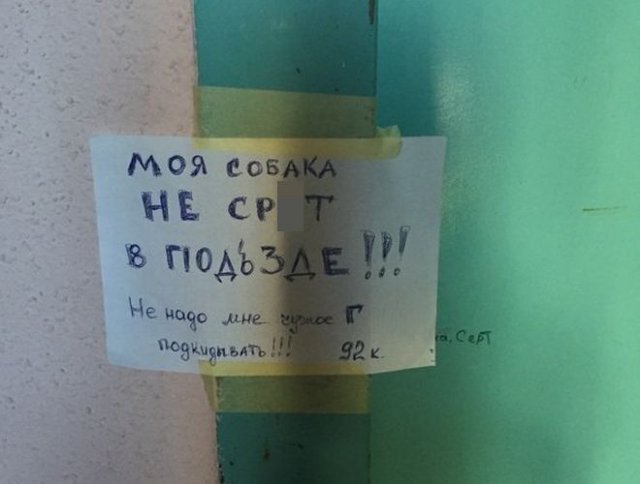 МОЯ СОБАКА
НЕ СР Т
В ПОДЪЗДЕ!!!
Не надо мне чужое Г
ПОДКИДЫВАТЬ!!! 92 к.